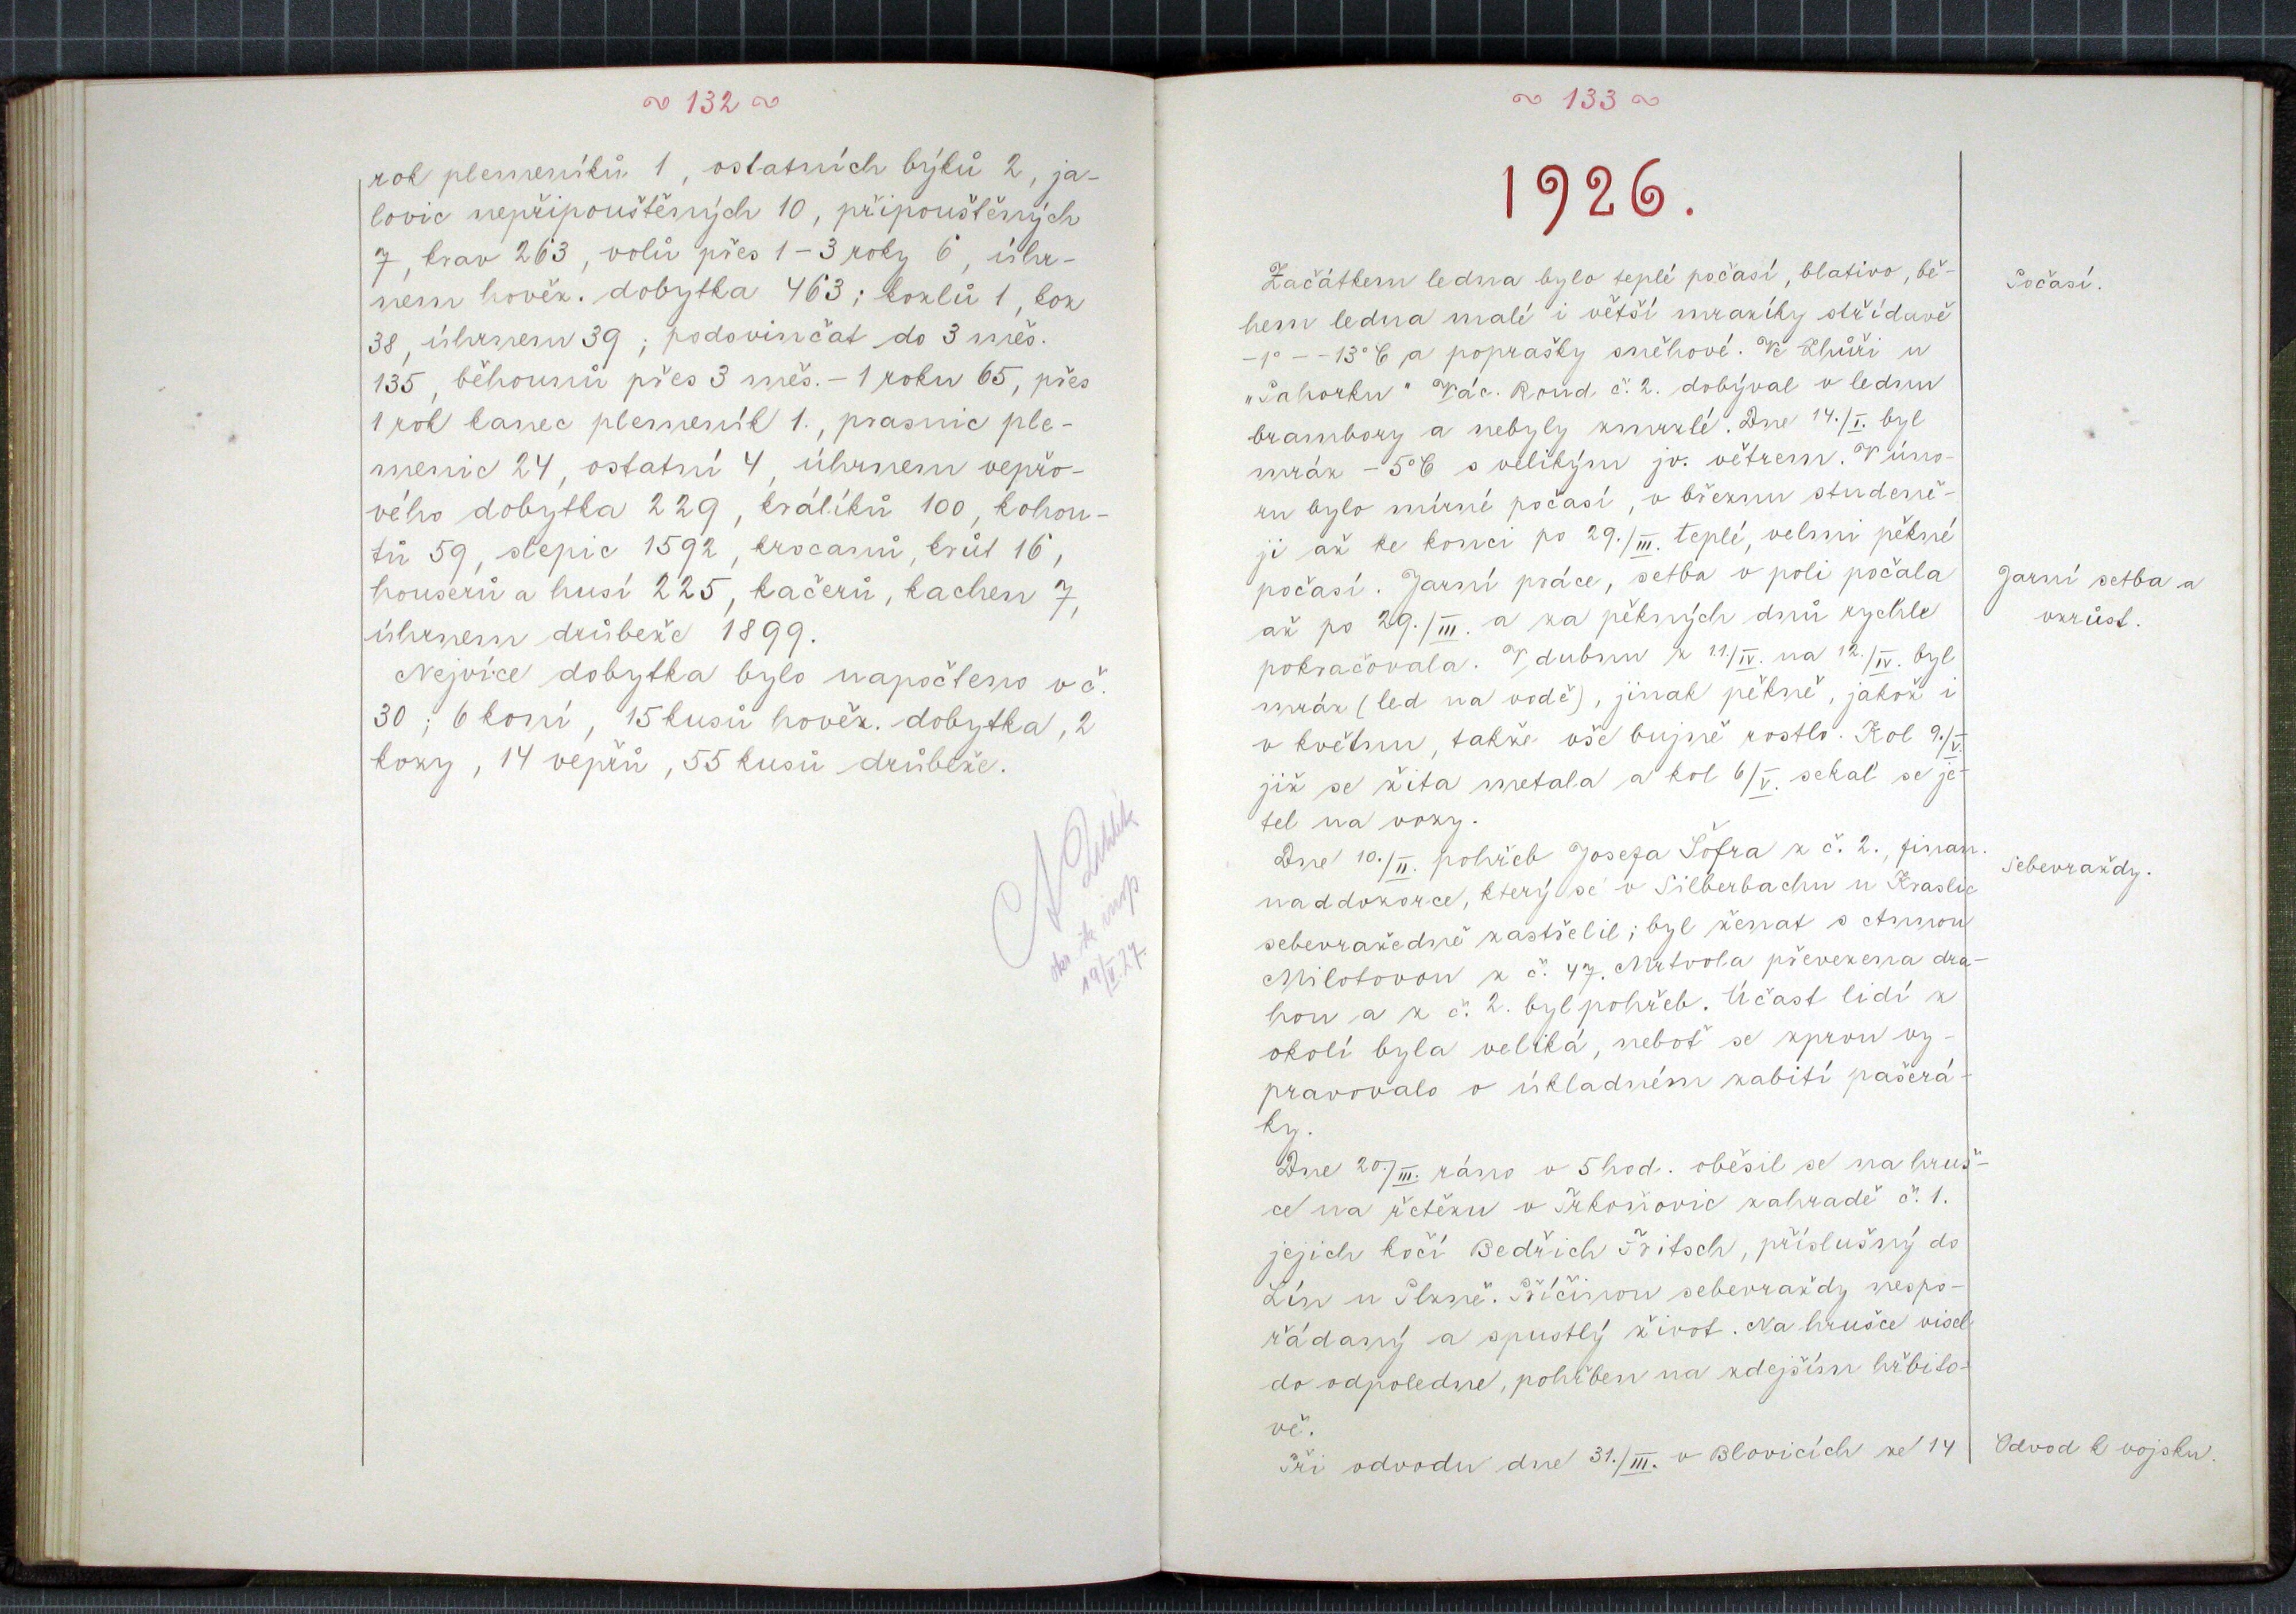 ~ 132 ~
rok plemeníků 1, ostatních býků 2, ja-
lovic nepřipouštěných 10, připouštěných
7, krav 263, volů přes 1 - 3 roky 6, úhr-
nem hověz. dobytka 463; kozlů 1, koz
38, úhrnem 39; podsvinčat do 3 měs.
135, běhounů přes 3 měs. - 1 roku 65, přes
1 rok kanec plemeník 1., prasnic ple-
menic 24, ostatní 4, úhrnem vepřo-
vého dobytka 229, králíků 100, kohou-
tů 59, slepic 1592, krocanů, krůt 16,
houserů a husí 225, kačerů, kachen 7,
úhrnem drůbeže 1899.
Nejvíce dobytka bylo napočteno v č.
30; 6 koní, 15 kusů hověz. dobytka, 2
kozy, 14 vepřů, 55 kusů drůbeže.
19/V. 27.
~ 133 ~
1926.
Začátkem ledna bylo teplé počasí, blativo, bě-
hem ledna malé i větší mrazíky střídavě
-1° - -13°C a poprašky sněhové. Ve Zhůři u
"Pahorku" Vác. Roud č. 2. dobýval v lednu
brambory a nebyly zmrzlé. Dne 14./I. byl
mráz -5°C s velikým jv. větrem. V úno-
ru bylo mírné počasí, v březnu studeně-
ji až ke konci po 29./III. teplé, velmi pěkné
počasí. Jarní práce, setba v poli počala
až po 29./III. a za pěkných dnů rychle
pokračovala. V dubnu z 11./IV. na 12./IV. byl
mráz (led na vodě), jinak pěkně, jakož i
v květnu, takže vše bujně rostlo. Kol 9./V.
již se žita metala a kol 6/V. sekal se je-
tel na vozy.
Dne 10./II. pohřeb Josefa Šöfra z č. 2., finan.
naddozorce, který se v Silberbachu u Kraslic
sebevražedně zastřelil; byl ženat s Annou
Milotovou z č. 47. Mrtvola převezena dra-
hou a z č. 2. byl pohřeb. Účast lidí z
okolí byla veliká, neboť se zprvu vy-
pravovalo o úkladném zabití pašerá-
ky.
Dne 20./III. ráno v 5 hod. oběsil se na hruš-
ce na řetězu v Trkoňovic zahradě č. 1.
jejich kočí Bedřich Tritsch, příslušný do
Lín u Plzně. Příčinou sebevraždy nespo-
řádaný a spustlý život. Na hrušce visel
do odpoledne, pohřben na zdejším hřbito-
vě.
Při odvodu dne 31./III. v Blovicích ze 14
Počasí.
Jarní setba a
vzrůst.
Sebevraždy.
Odvod k vojsku.